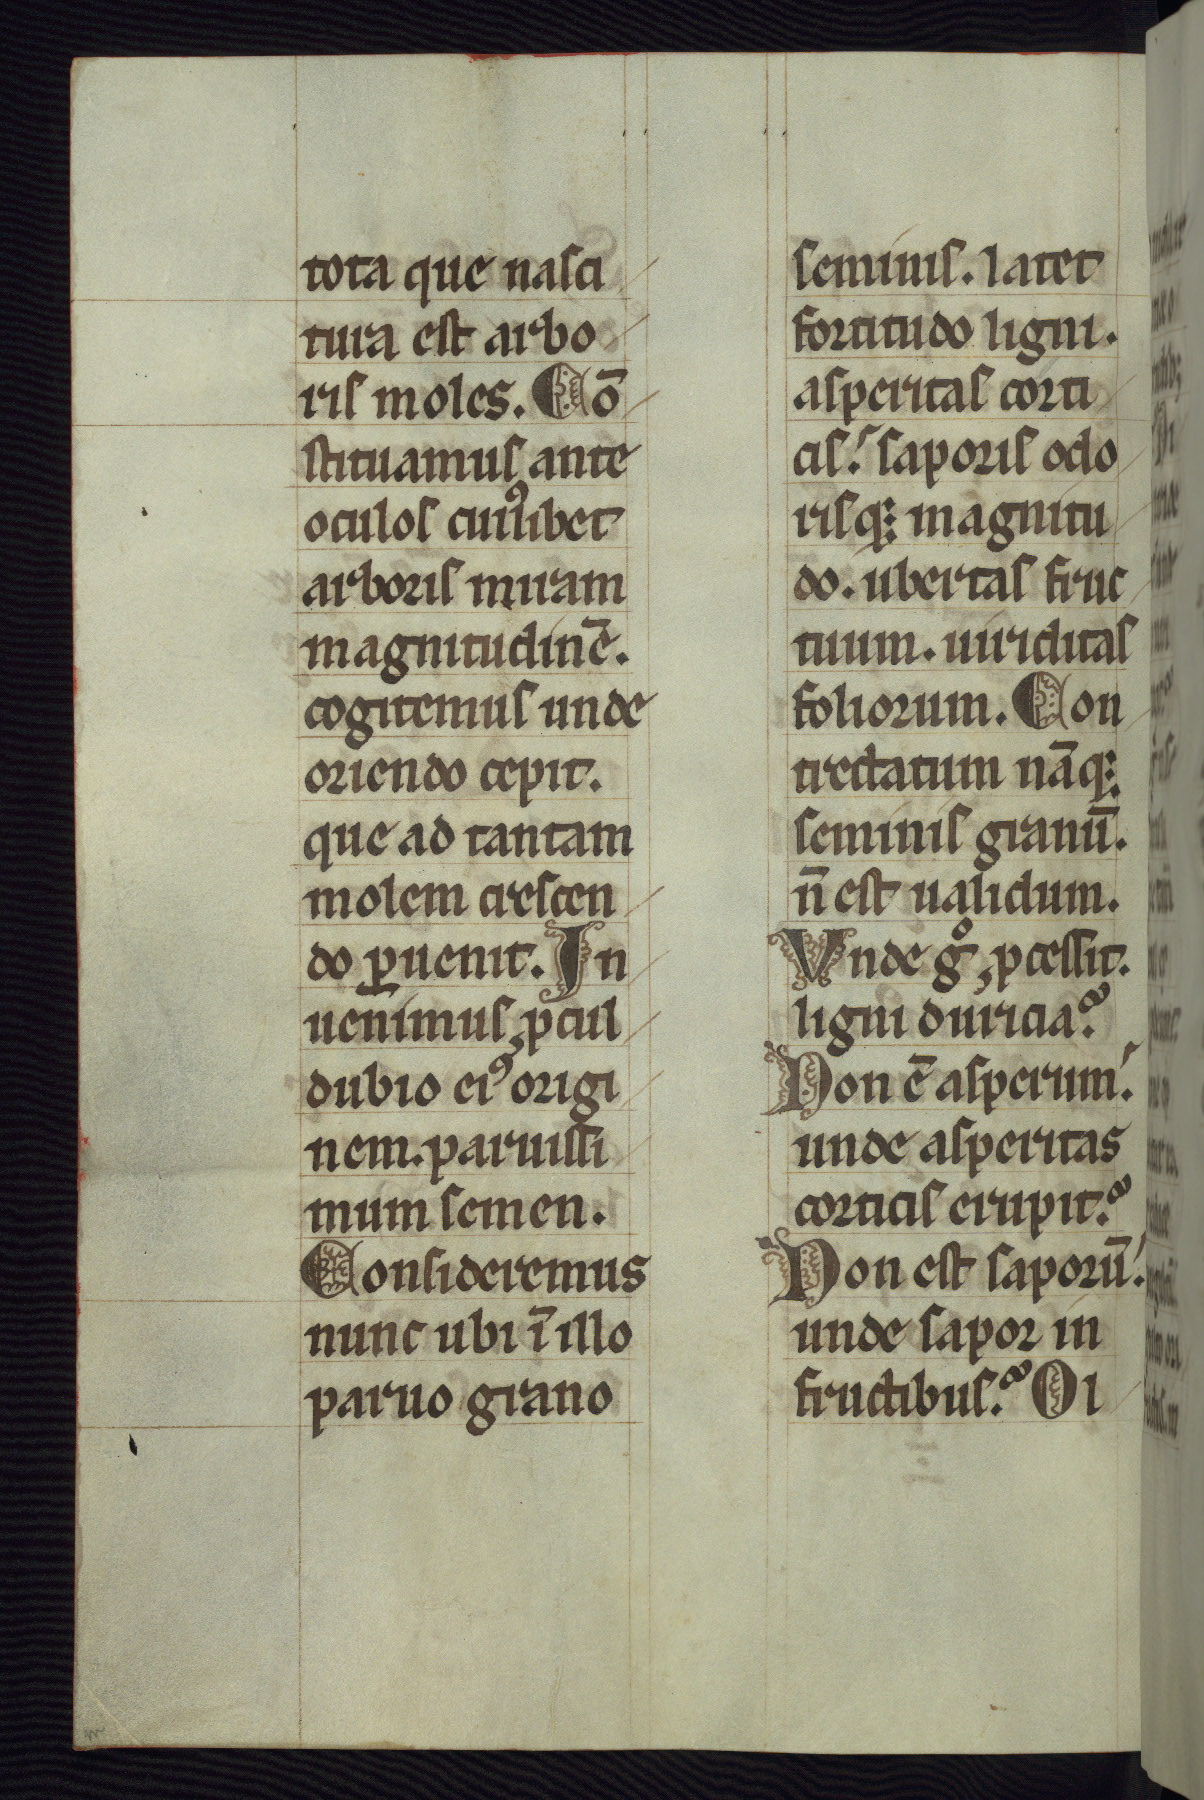 tota que nasci
tura est arbo
ris moles. Cō
stituamus ante
oculos cuiꝰlibet
arboris miram
magnitudinē.
cogitemus unde
oriendo cepit.
que ad tantam
molem crescen
do ꝑuenit. In
uenimus ꝓcul
dubio eiꝰ origi
nem. paruissi
mum semen.
Consideremus
nunc ubi ī illo
paruo grano
seminis. latet
fortitudo ligni.
asperitas corti
cis. saporis odo
risq; magnitu
do. ubertas fruc
tuum. uiriditas
foliorum. Con
trectatum nāq;
seminis granū.
n̄ est ualidum.
Vnde gͦ ꝓcessit.
ligni duricia?
Non ē asperum.
unde asperitas
corticis erupit?
Non est saporū.
unde sapor in
fructibus? Oi